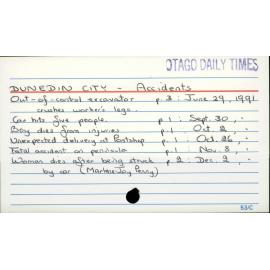 OTAGO DAILY TIMES
DUNEDIN CITY - Accidents
Out-of-control excavator p.3: June 29, 1991
crushes worker's legs.
Car hits five people. p.1: Sept. 30, "
Boy dies from injuries p.1: Oct. 2, "
Unexpected delivery at Portship p.1: Oct. 26, "
Fatal accident on peninsula p.1: Nov. 8, "
Woman dies after being struck p.2: Dec. 2, "
by car (Marlene Joy Perry)
B3/C